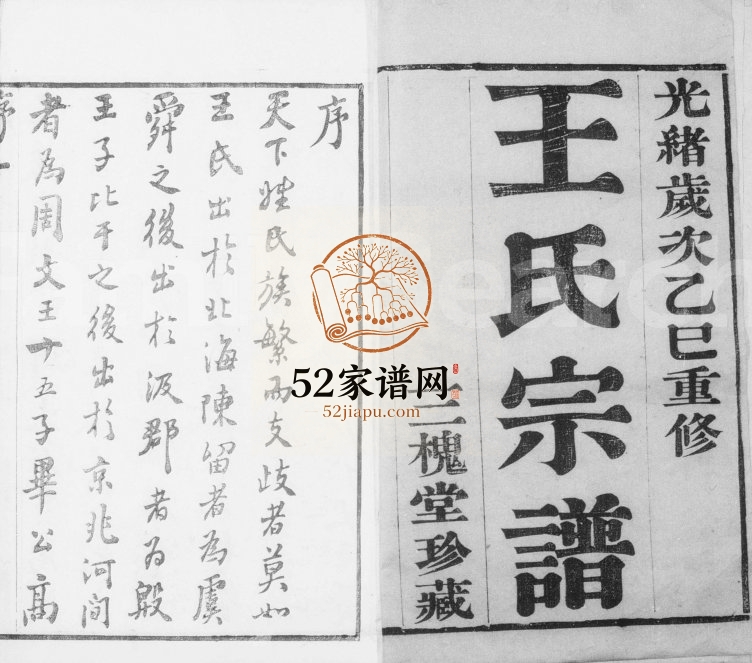 光緒歲次乙巳重修
王氏宗譜
三槐堂珍藏
序
天下姓氏族繁而支歧者莫如
王氏出於北海陳留者為虞
舜之後出於汲郡者為殷
王子比干之後出於京兆河間
者為周文王十五子畢公高
序一
52家谱网
52jiapu.com